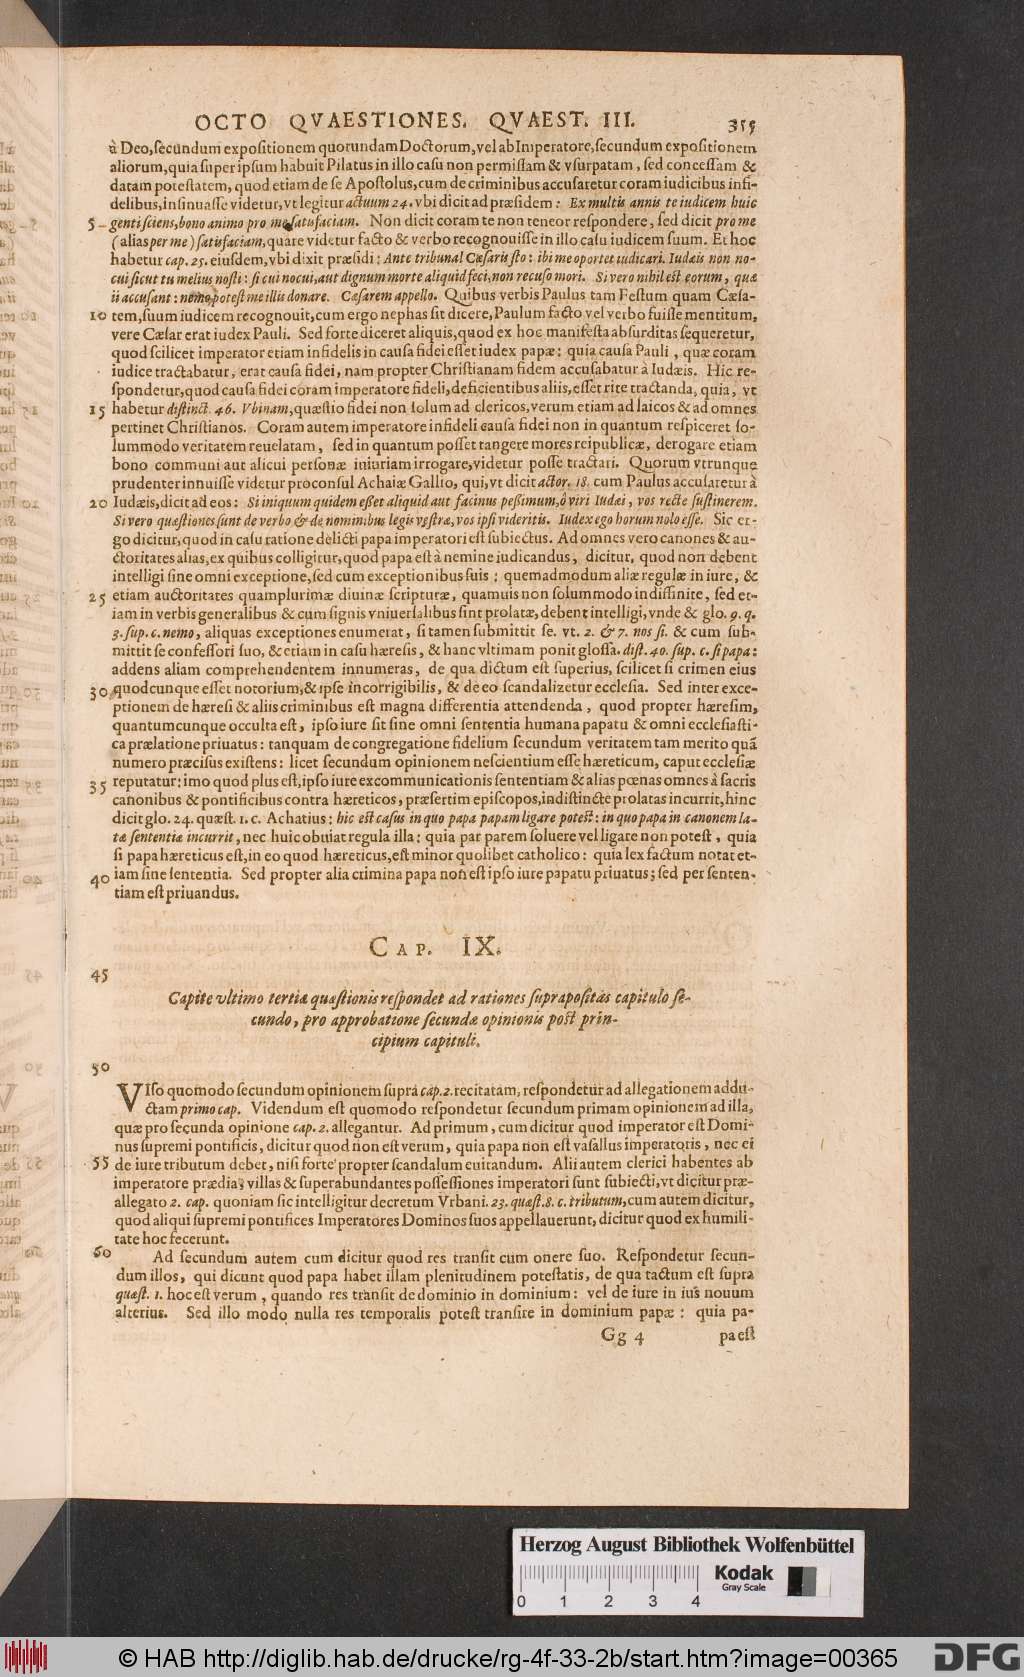 OCTO QVAESTIONES. QVAEST. III. 355
à Deo, secundum expositionem quorundam Doctorum, vel ab Imperatore, secundum expositionem
aliorum, quia super ipsum habuit Pilatus in illo casu non permissam & vsurpatam, sed concessam &
datam potestatem, quod etiam de se Apostolus, cum de criminibus accusaretur coram iudicibus infi-
delibus, insinuasse videtur, vt legitur actuum 24. vbi dicit ad præsidem: Ex multis annis te iudicem huic
5 genti sciens, bono animo pro me satisfaciam. Non dicit coram te non teneor respondere, sed dicit pro me
(alias per me) satisfaciam, quare videtur facto & verbo recognouisse in illo casu iudicem suum. Et hoc
habetur cap. 25. eiusdem, vbi dixit præsidi: Ante tribunal Cæsaris sto: ibi me oportet iudicari. Iudæis non no-
cui sicut tu melius nosti: si cui nocui, aut dignum morte aliquid feci, non recuso mori. Si vero nihil est eorum, quæ
ii accusant: nemo potest me illis donare. Cæsarem appello. Quibus verbis Paulus tam Festum quam Cæsa-
10 tem, suum iudicem recognouit, cum ergo nephas sit dicere, Paulum facto vel verbo fuisse mentitum,
vere Cæsar erat iudex Pauli. Sed forte diceret aliquis, quod ex hoc manifesta absurditas sequeretur,
quod scilicet imperator etiam infidelis in causa fidei esset iudex papæ: quia causa Pauli, quæ coram
iudice tractabatur, erat causa fidei, nam propter Christianam fidem accusabatur à Iudæis. Hic re-
spondetur, quod causa fidei coram imperatore fideli, deficientibus aliis, esset rite tractanda, quia, vt
15 habetur distinct. 46. Vbinam, quæstio fidei non solum ad clericos, verum etiam ad laicos & ad omnes
pertinet Christianos. Coram autem imperatore infideli causa fidei non in quantum respiceret so-
lummodo veritatem reuelatam, sed in quantum posset tangere mores reipublicæ, derogare etiam
bono communi aut alicui personæ iniuriam irrogare, videtur posse tractari. Quorum vtrunque
prudenter innuisse videtur proconsul Achaiæ Gallio, qui, vt dicit actor. 18. cum Paulus accusaretur à
20 Iudæis, dicit ad eos: Si iniquum quidem esset aliquid aut facinus pessimum, ô viri Iudæi, vos recte sustinerem.
Si vero quæstiones sunt de verbo & de nominibus legis vestræ, vos ipsi videritis. Iudex ego horum nolo esse. Sic er-
go dicitur, quod in casu ratione delicti papa imperatori est subiectus. Ad omnes vero canones & au-
ctoritates alias, ex quibus colligitur, quod papa est à nemine iudicandus, dicitur, quod non debent
intelligi sine omni exceptione, sed cum exceptionibus suis: quemadmodum aliæ regulæ in iure, &
25 etiam auctoritates quamplurimæ diuinæ scripturæ, quamuis non solummodo indiffinite, sed et-
iam in verbis generalibus & cum signis vniuersalibus sint prolatæ, debent intelligi, vnde & glo. 9. q.
3. sup. c. nemo, aliquas exceptiones enumerat, si tamen submittit se. vt. 2. & 7. nos si. & cum sub-
mittit se confessori suo, & etiam in casu hæresis, & hanc vltimam ponit glossa. dist. 40. sup. c. si papa:
addens aliam comprehendentem innumeras, de qua dictum est superius, scilicet si crimen eius
30 quodcunque esset notorium, & ipse incorrigibilis, & de eo scandalizetur ecclesia. Sed inter exce-
ptionem de hæresi & aliis criminibus est magna differentia attendenda, quod propter hæresim,
quantumcunque occulta est, ipso iure sit sine omni sententia humana papatu & omni ecclesiasti-
ca prælatione priuatus: tanquam de congregatione fidelium secundum veritatem tam merito quã
numero præcisus existens: licet secundum opinionem nescientium esse hæreticum, caput ecclesiæ
35 reputatur: imo quod plus est, ipso iure excommunicationis sententiam & alias pœnas omnes à sacris
canonibus & pontificibus contra hæreticos, præsertim episcopos, indistincte prolatas incurrit, hinc
dicit glo. 24. quæst. 1. c. Achatius: hic est casus in quo papa papam ligare potest: in quo papa in canonem la-
tæ sententiæ incurrit, nec huic obuiat regula illa: quia par parem soluere vel ligare non potest, quia
si papa hæreticus est, in eo quod hæreticus, est minor quolibet catholico: quia lex factum notat et-
40 iam sine sententia. Sed propter alia crimina papa non est ipso iure papatu priuatus; sed per senten-
tiam est priuandus.
CAP. IX.
45
Capite vltimo tertiæ quæstionis respondet ad rationes suprapositas capitulo se-
cundo, pro approbatione secundæ opinionis post prin-
cipium capituli.
50
VIso quomodo secundum opinionem supra cap. 2. recitatam, respondetur ad allegationem addu-
ctam primo cap. Videndum est quomodo respondetur secundum primam opinionem ad illa,
quæ pro secunda opinione cap. 2. allegantur. Ad primum, cum dicitur quod imperator est Domi-
nus supremi pontificis, dicitur quod non est verum, quia papa non est vasallus imperatoris, nec ei
55 de iure tributum debet, nisi forte propter scandalum euitandum. Alii autem clerici habentes ab
imperatore prædia, villas & superabundantes possessiones imperatori sunt subiecti, vt dicitur præ-
allegato 2. cap. quoniam sic intelligitur decretum Vrbani. 23. quæst. 8. c. tributum, cum autem dicitur,
quod aliqui supremi pontifices Imperatores Dominos suos appellauerunt, dicitur quod ex humili-
tate hoc fecerunt.
60 Ad secundum autem cum dicitur quod res transit cum onere suo. Respondetur secun-
dum illos, qui dicunt quod papa habet illam plenitudinem potestatis, de qua tactum est supra
quæst. 1. hoc est verum, quando res transit de dominio in dominium: vel de iure in ius nouum
alterius. Sed illo modo nulla res temporalis potest transire in dominium papæ: quia pa-
Gg 4 pa est
Herzog August Bibliothek Wolfenbüttel
Kodak
Gray Scale
0 1 2 3 4
© HAB http://diglib.hab.de/drucke/rg-4f-33-2b/start.htm?image=00365
DFG